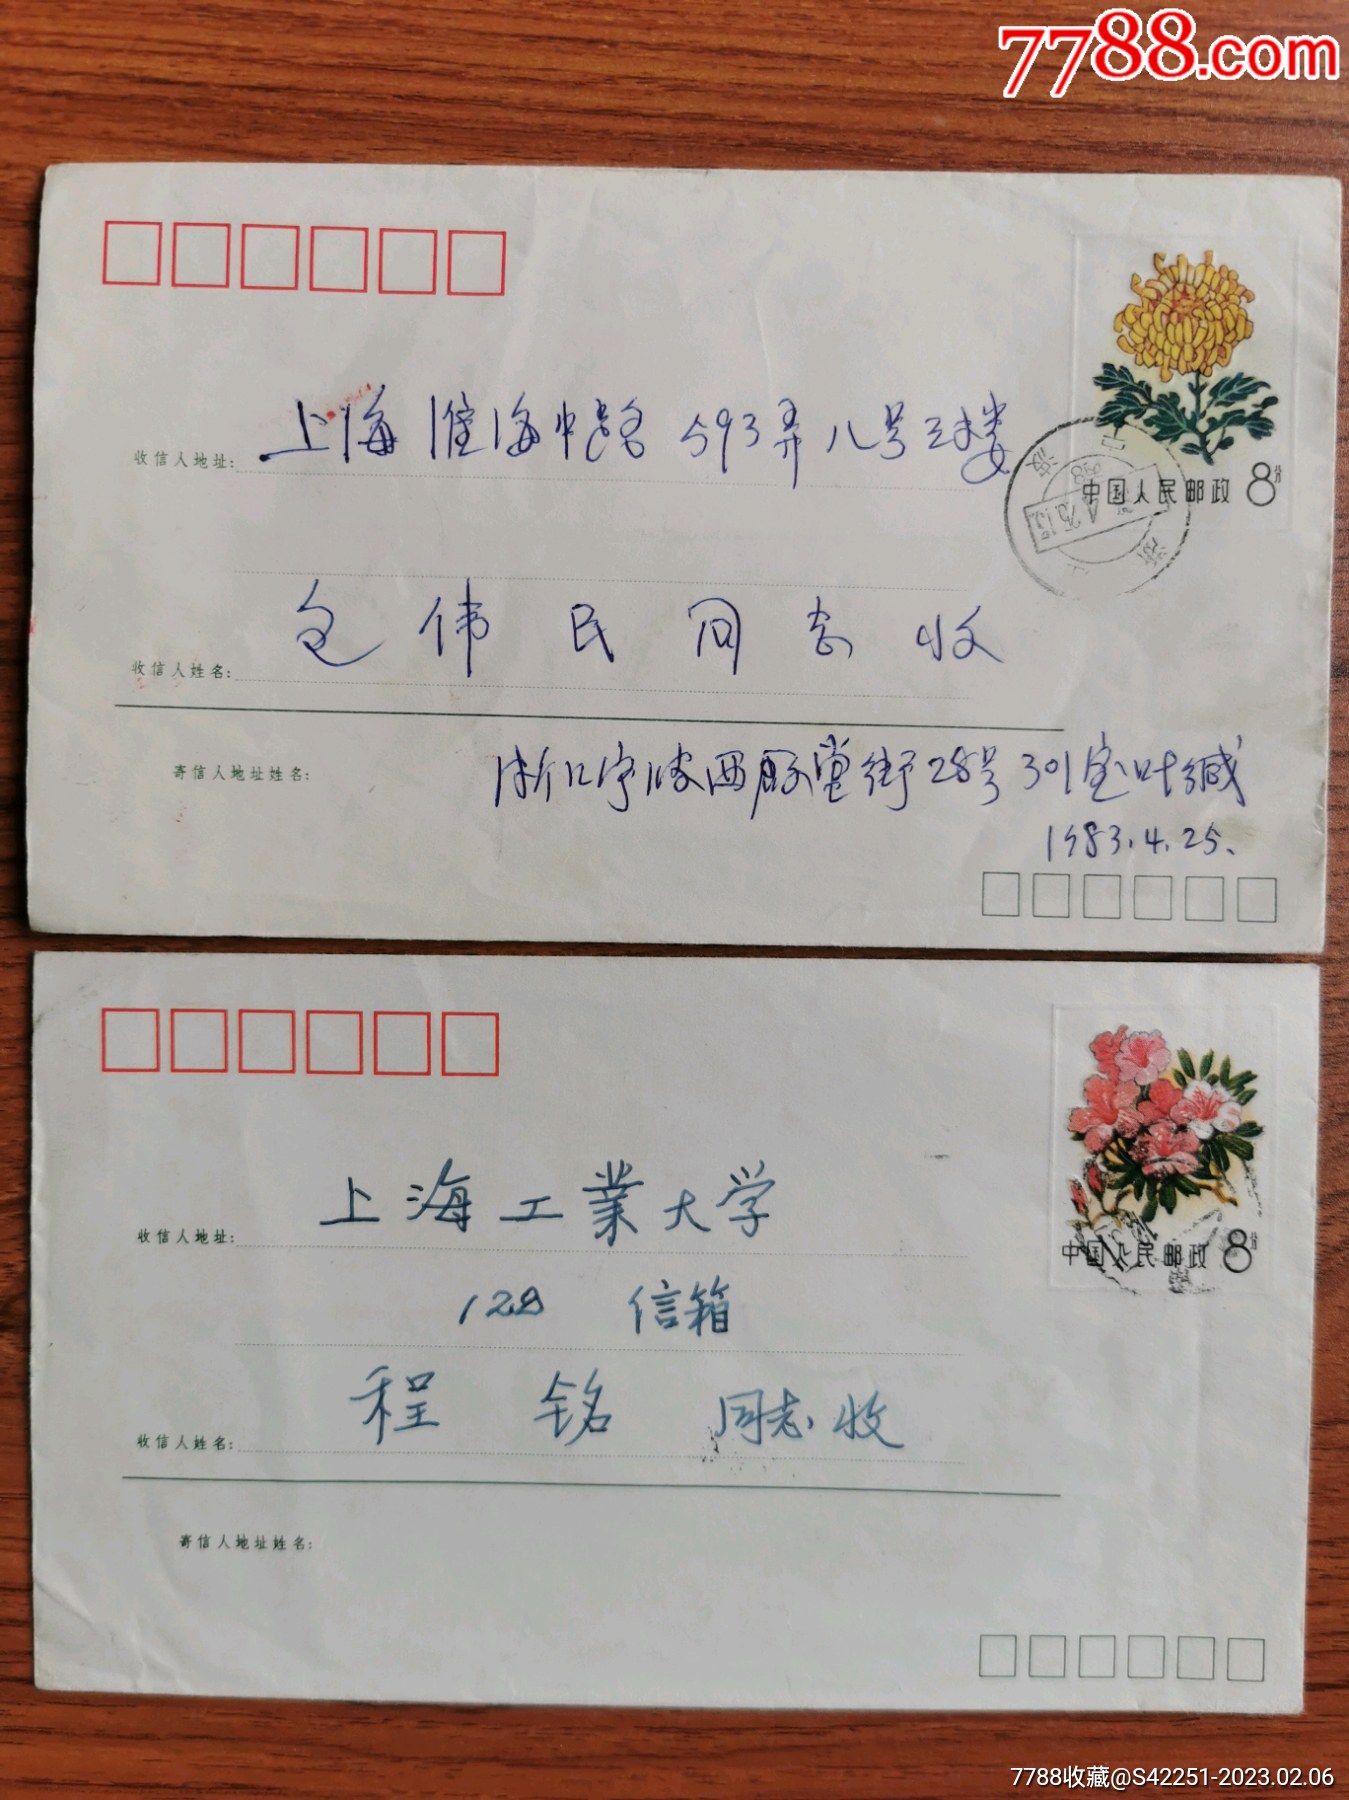 7788.com
收信人地址: 上海淮海中路593弄八号三楼
中国人民邮政 8分
收信人姓名: 包伟民同志收
寄信人地址姓名: 浙江宁波西郊堂街28号301室叶缄
1983.4.25.
收信人地址: 上海工業大学
128 信箱
中国人民邮政 8分
收信人姓名: 程铭同志收
寄信人地址姓名:
7788收藏@S42251-2023.02.06